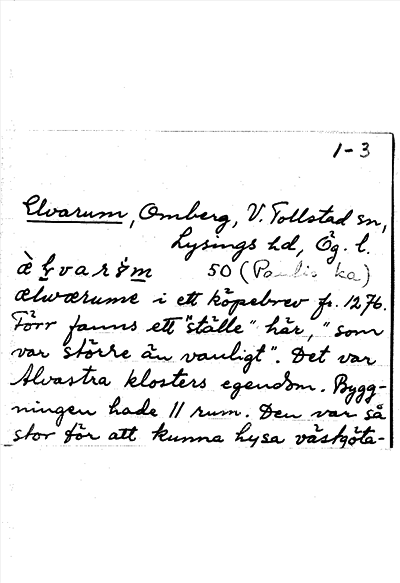 1-3
Elvarum, Omberg, V. Tollstad sn,
Lysings hd, Ög. l.
50 (
ælwærume i ett köpebrev fr. 1276.
Förr fanns ett "ställe" här, "som
var större än vanligt". Det var
Alvastra klosters egendom. Bygg-
ningen hade 11 rum. Den var så
stor för att kunna hysa västgöta-